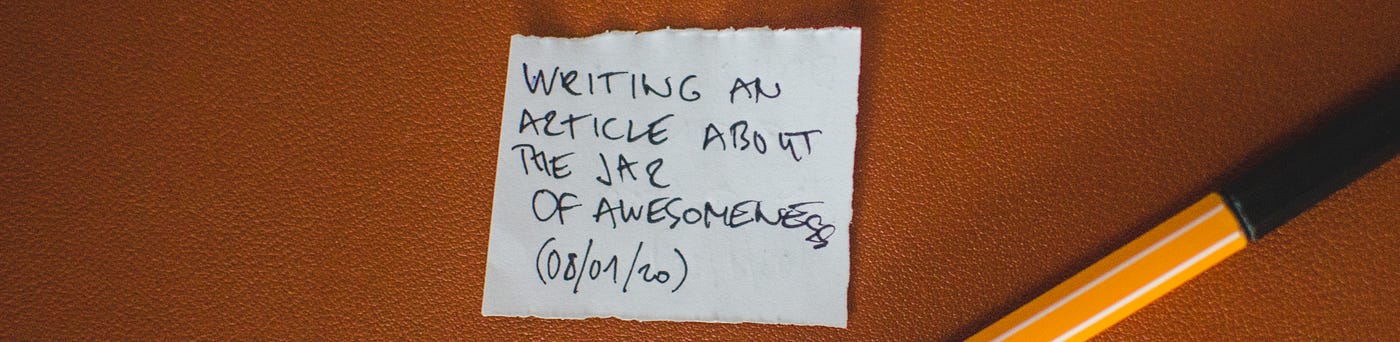 WRITING AN
ARTICLE ABOUT
THE JAR
OF AWESOMENESS
(08/01/20)